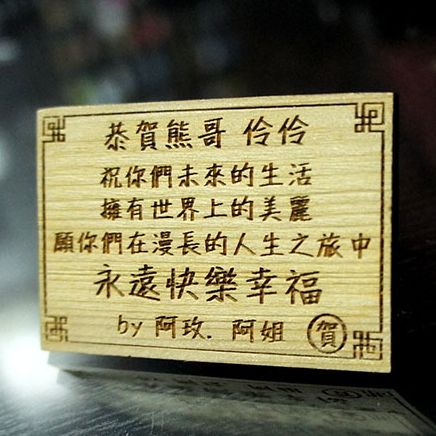 恭賀熊哥 伶伶
祝你們未來的生活
擁有世界上的美麗
願你們在漫長的人生之旅中
永遠快樂幸福
by 阿玫. 阿姐 賀